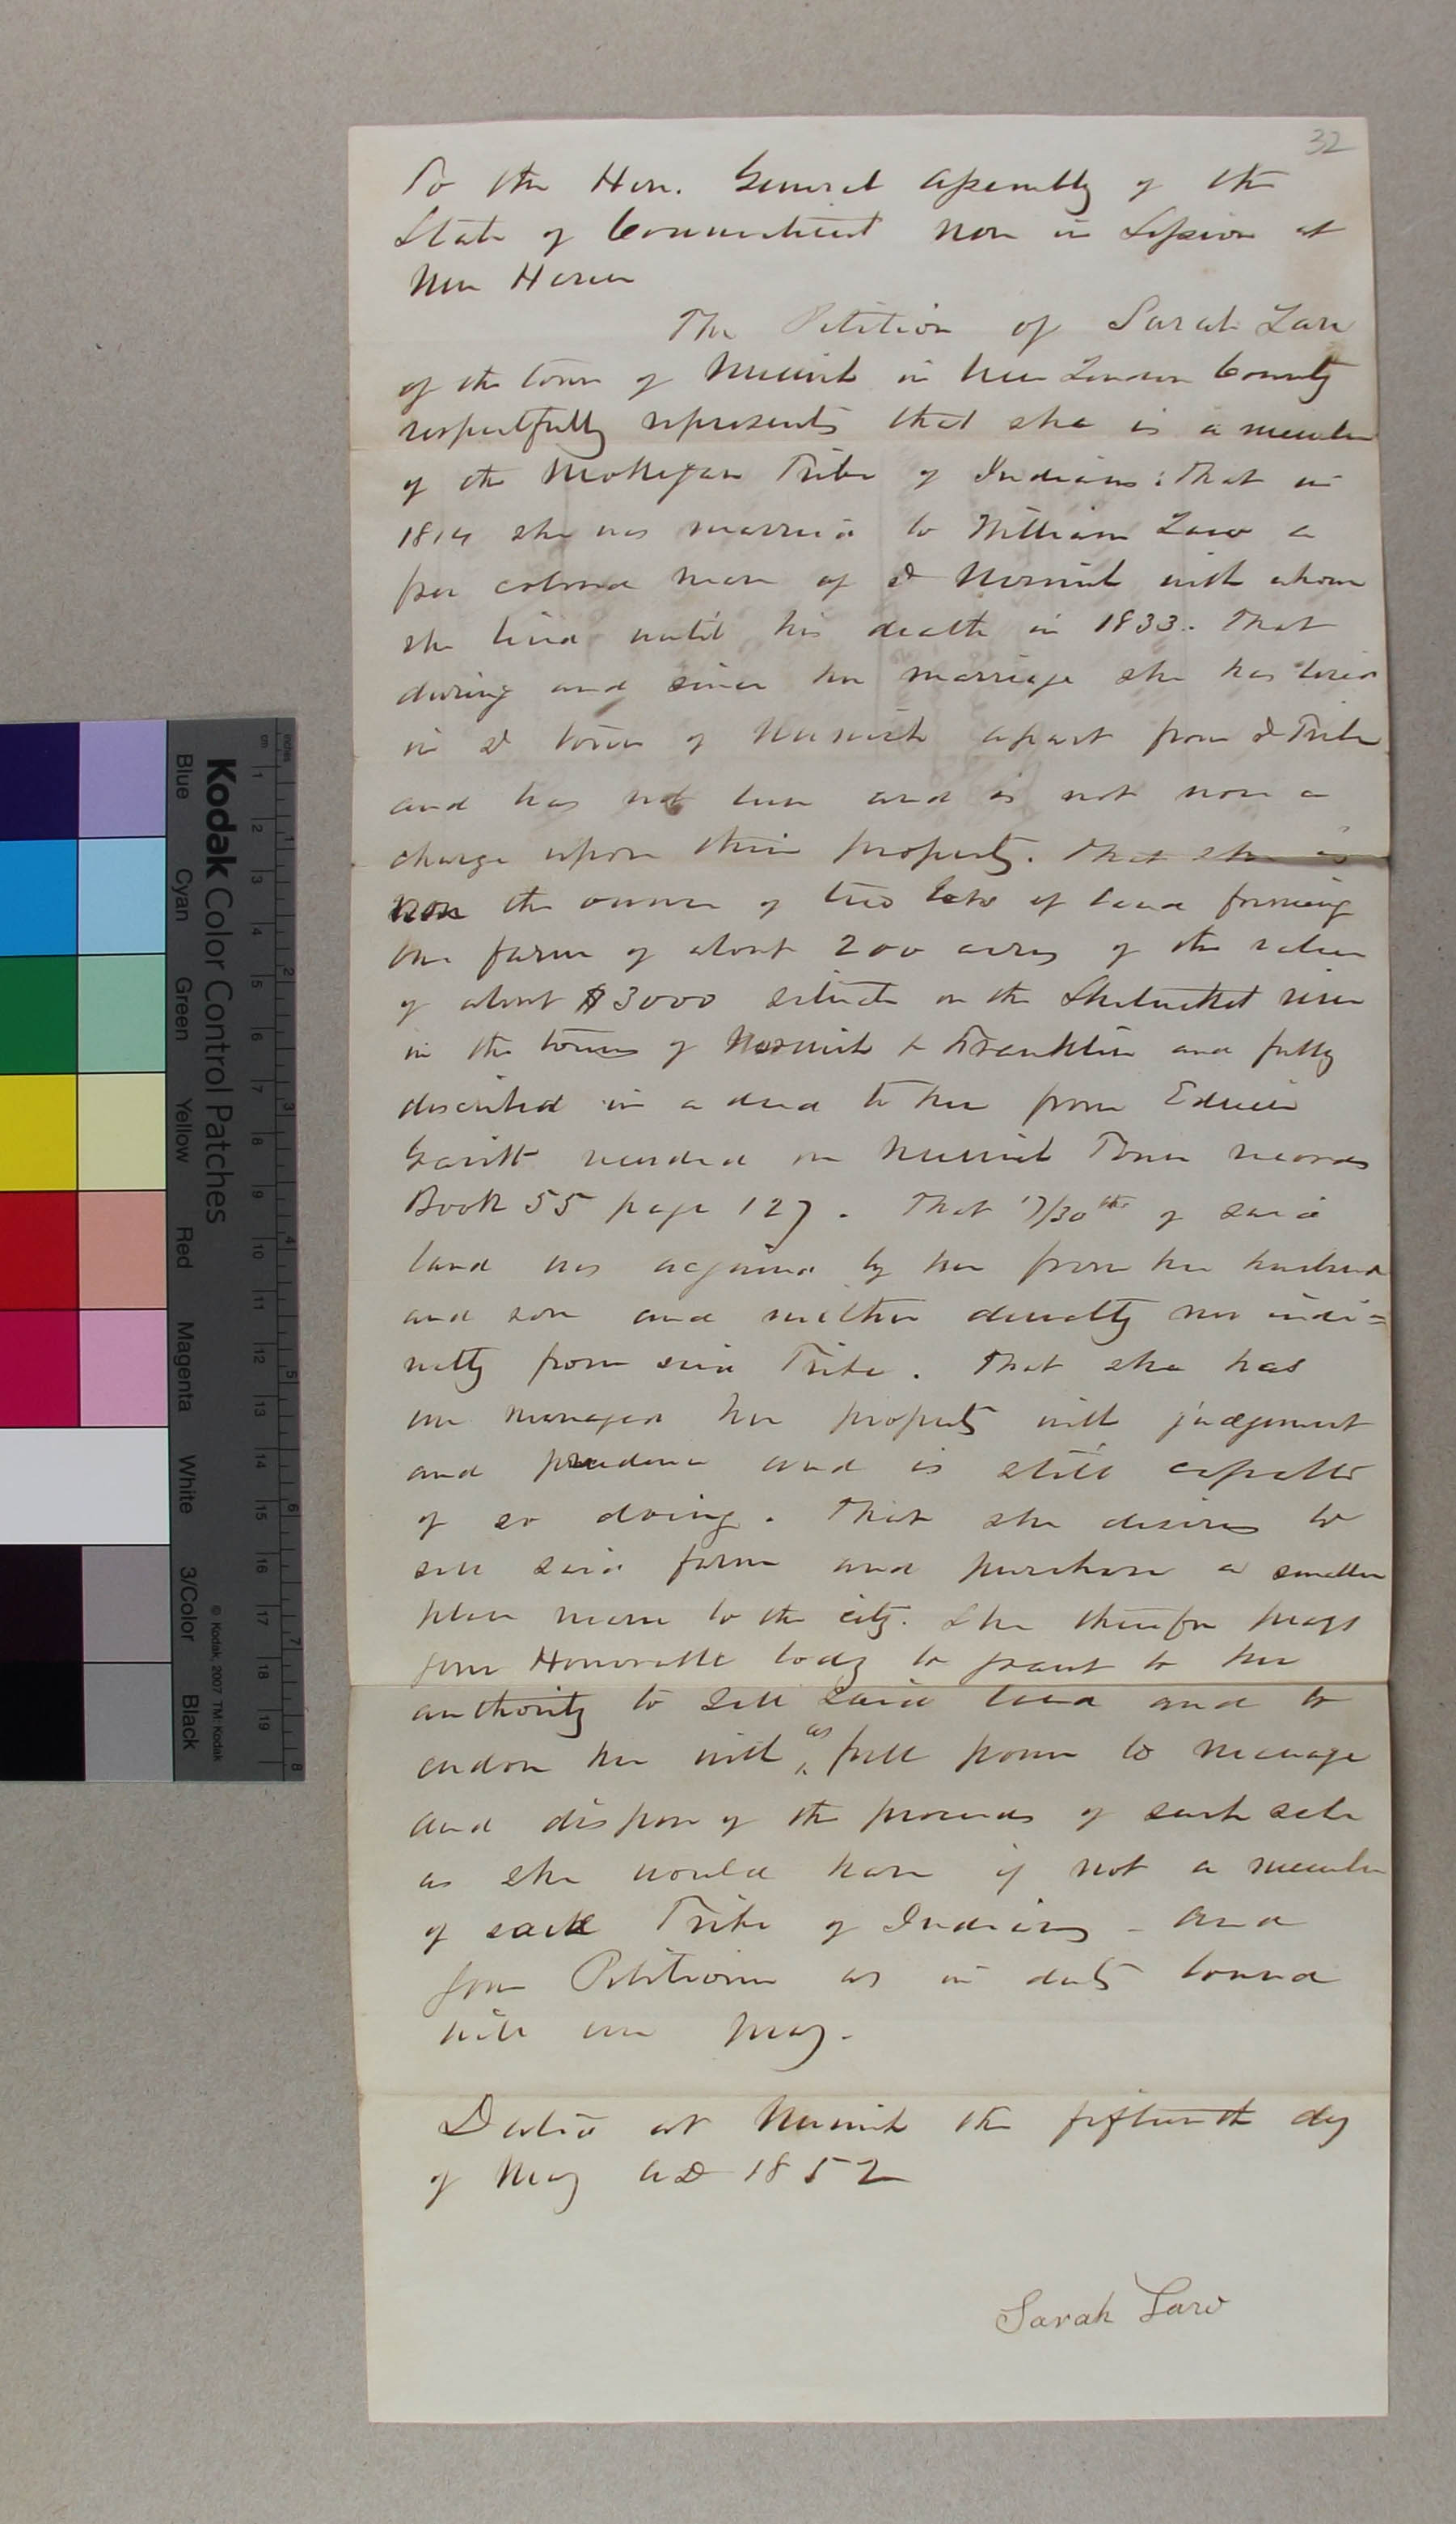 32
To the Hon. General Assembly of the
State of Connecticut now in Session at
New Haven
The Petition of Sarah Law
of the town of Norwich in New London County
respectfully represents that she is a member
of the Mohegan Tribe of Indians: that in
1814 she was married to William Law a
free colored man of sd Norwich with whom
she lived until his death in 1833. That
during and since her marriage she has lived
in sd town of Norwich apart from sd Tribe
and has not been and is not now a
charge upon their property. That she is
now the owner of two lots of land forming
one farm of about 200 acres of the value
of about $3000 situate on the Shetucket river
in the towns of Norwich & Franklin and fully
described in a deed to her from Edwin
recorded on Norwich Town records
Book 55 page 127. That 17/30ths of said
land was acquired by her from her husband
and son and neither directly nor indi=
rectly from said Tribe. That she has
ever managed her property with judgement
and prudence and is still capable
of so doing. That she desires to
sell said farm and purchase a smaller
place nearer to the city. She therefore prays
your Honorable body to grant to her
authority to sell said land and to
endow her with as full power to manage
and dispose of the proceeds of such sale
as she would have if not a member
of said Tribe of Indians - and
your Petitioner as in duty bound
will ever pray.
Dated at Norwich the fifteenth day
of May AD 1852
Sarah Law
inches
cm
1 2 3 4 5 6 7 8 9 10 11 12 13 14 15 16 17 18 19
1 2 3 4 5 6 7 8
Kodak Color Control Patches
© Kodak, 2007 TM: Kodak
Blue Cyan Green Yellow Red Magenta White 3/Color Black